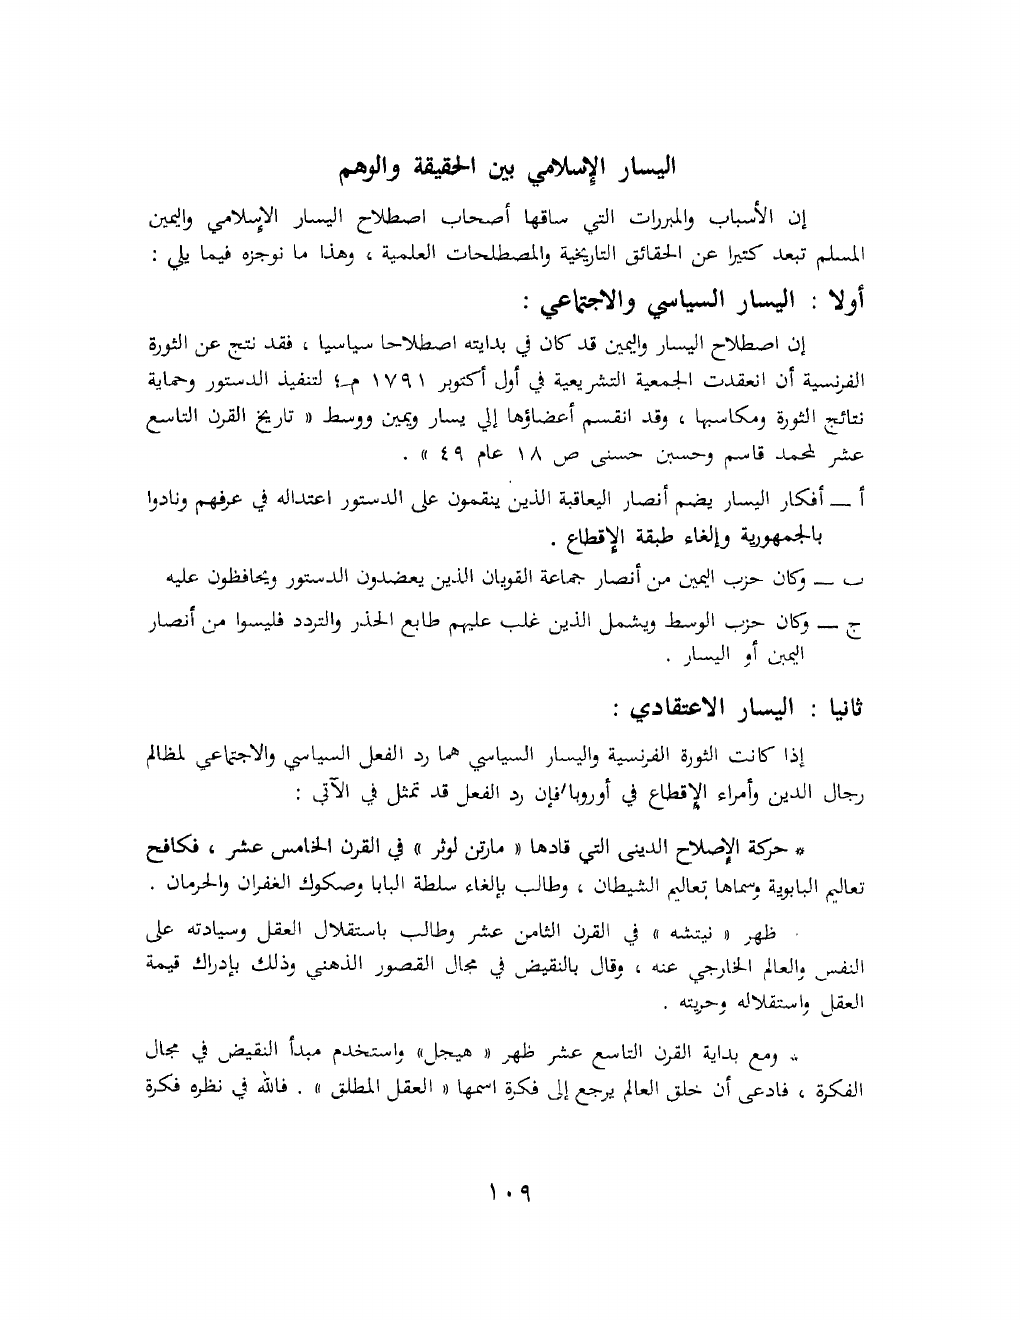 اليسار الإسلامي بين الحقيقة والوهم
إن الأسباب والمبررات التي ساقها أصحاب اصطلاح اليسار الإسلامي واليمين
المسلم تبعد كثيرا عن الحقائق التاريخية والمصطلحات العلمية ، وهذا ما نوجزه فيما يلي :
أولا : اليسار السياسي والاجتماعي :
إن اصطلاح اليسار واليمين قد كان في بدايته اصطلاحا سياسيا ، فقد نتج عن الثورة
الفرنسية أن انعقدت الجمعية التشريعية في أول أكتوبر ١٧٩١ م؛ لتنفيذ الدستور وحماية
نتائج الثورة ومكاسبها ، وقد انقسم أعضاؤها إلي يسار ويمين ووسط « تاريخ القرن التاسع
عشر لمحمد قاسم وحسين حسنى ص ١٨ عام ٤٩ » .
أ — أفكار اليسار يضم أنصار اليعاقبة الذين ينقمون على الدستور اعتداله في عرفهم ونادوا
بالجمهورية وإلغاء طبقة الإقطاع .
ب — وكان حزب اليمين من أنصار جماعة القويان الذين يعضدون الدستور ويحافظون عليه
ج — وكان حزب الوسط ويشمل الذين غلب عليهم طابع الحذر والتردد فليسوا من أنصار
اليمين أو اليسار .
ثانيا : اليسار الاعتقادي :
إذا كانت الثورة الفرنسية واليسار السياسي هما رد الفعل السياسي والاجتماعي لمظالم
رجال الدين وأمراء الإقطاع في أوروبا فإن رد الفعل قد تمثل في الآتي :
* حركة الإصلاح الدينى التي قادها « مارتن لوثر » في القرن الخامس عشر ، فكافح
تعاليم البابوية وسماها تعاليم الشيطان ، وطالب بإلغاء سلطة البابا وصكوك الغفران والحرمان .
· ظهر « نيتشه » في القرن الثامن عشر وطالب باستقلال العقل وسيادته على
النفس والعالم الخارجي عنه ، وقال بالنقيض في مجال القصور الذهني وذلك بإدراك قيمة
العقل واستقلاله وحريته .
* ومع بداية القرن التاسع عشر ظهر « هيجل» واستخدم مبدأ النقيض في مجال
الفكرة ، فادعى أن خلق العالم يرجع إلى فكرة اسمها « العقل المطلق » . فالله في نظره فكرة
١٠٩